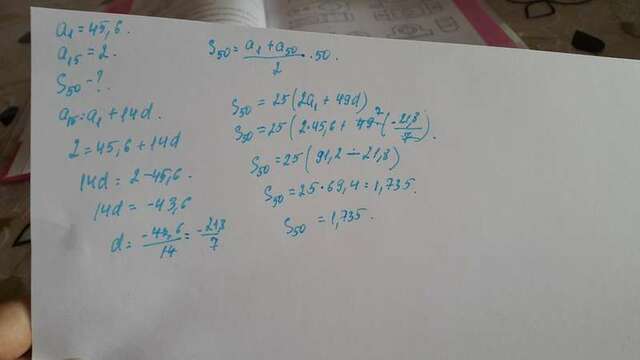 a₁ = 45,6.
a₁₅ = 2.
S₅₀ - ?
a₁₅ = a₁ + 14d.
2 = 45,6 + 14d
14d = 2 - 45,6.
14d = -43,6
d = -43,6/14 = -21,8/7
S₅₀ = (a₁ + a₅₀)/2 · 50.
S₅₀ = 25(2a₁ + 49d)
S₅₀ = 25(2·45,6 + 49·(-21,8/7)).
S₅₀ = 25(91,2 - 21,8)
S₅₀ = 25·69,4 = 1,735.
S₅₀ = 1,735.